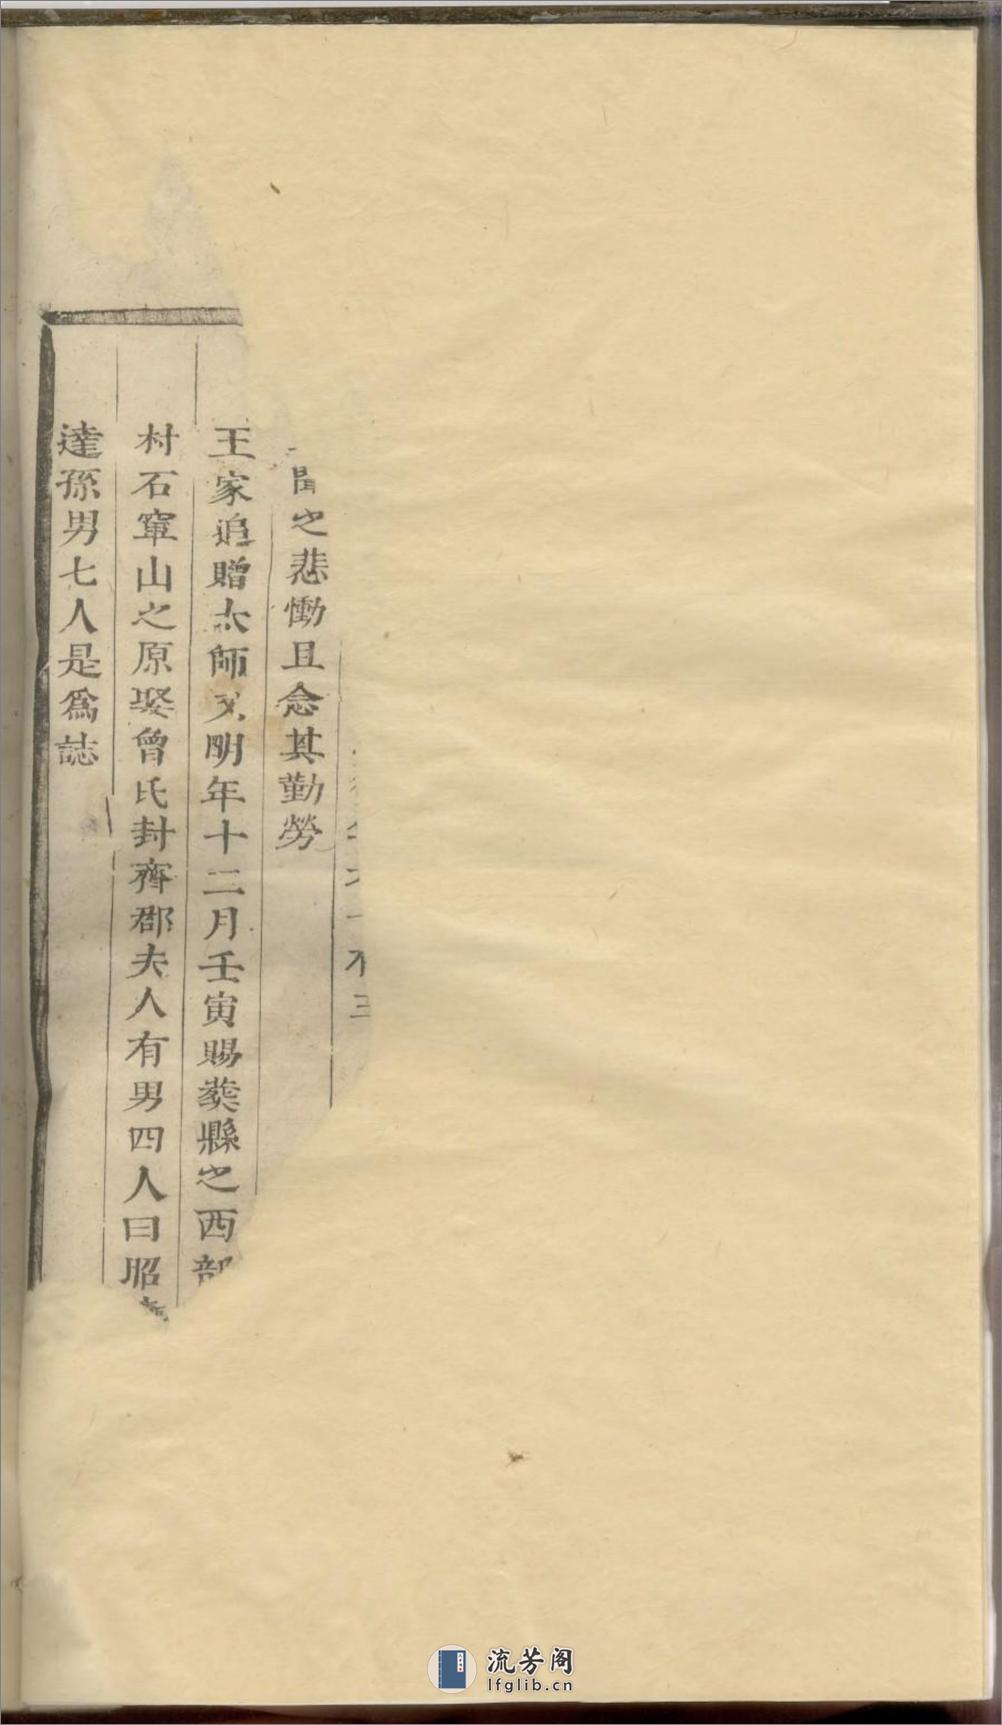 三
聞之悲慟且念其勤勞
王家追贈太師又明年十二月壬寅賜葬縣之西部
村石窜山之原娶曾氏封齊郡夫人有男四人曰昭
達孫男七人是爲誌
流芳阁
lfglib.cn